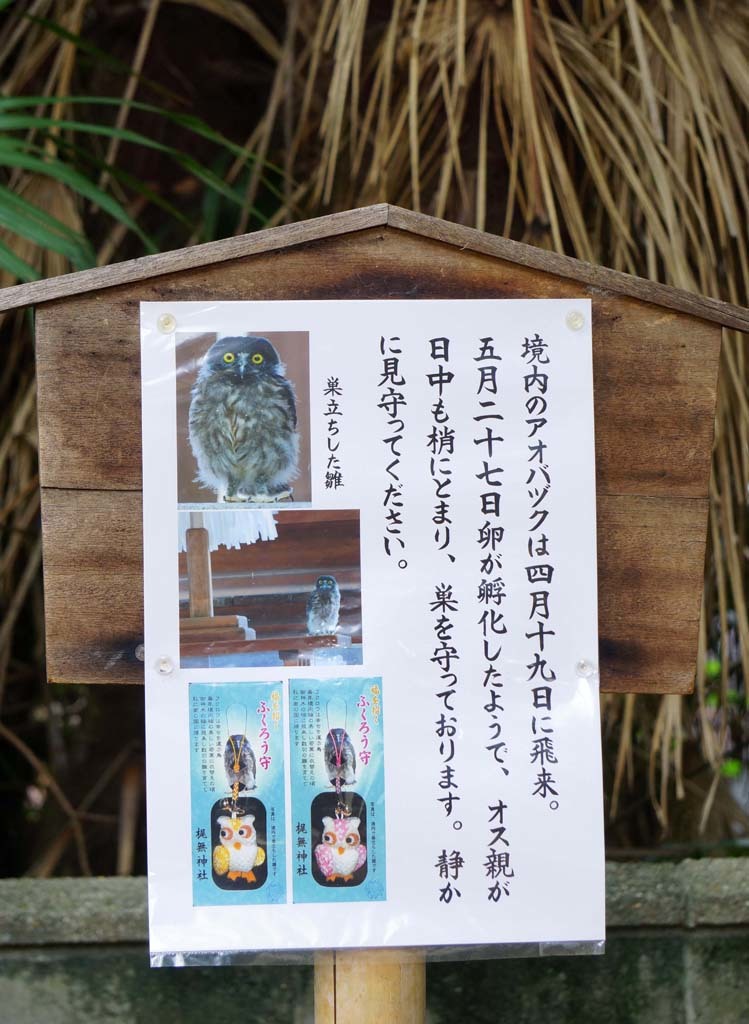 境内のアオバヅクは四月十九日に飛来。
五月二十七日卵が孵化したようで、オス親が
日中も梢にとまり、巣を守っております。静か
に見守ってください。
巣立ちした雛
ふくろう守
梶無神社
ふくろう守
梶無神社